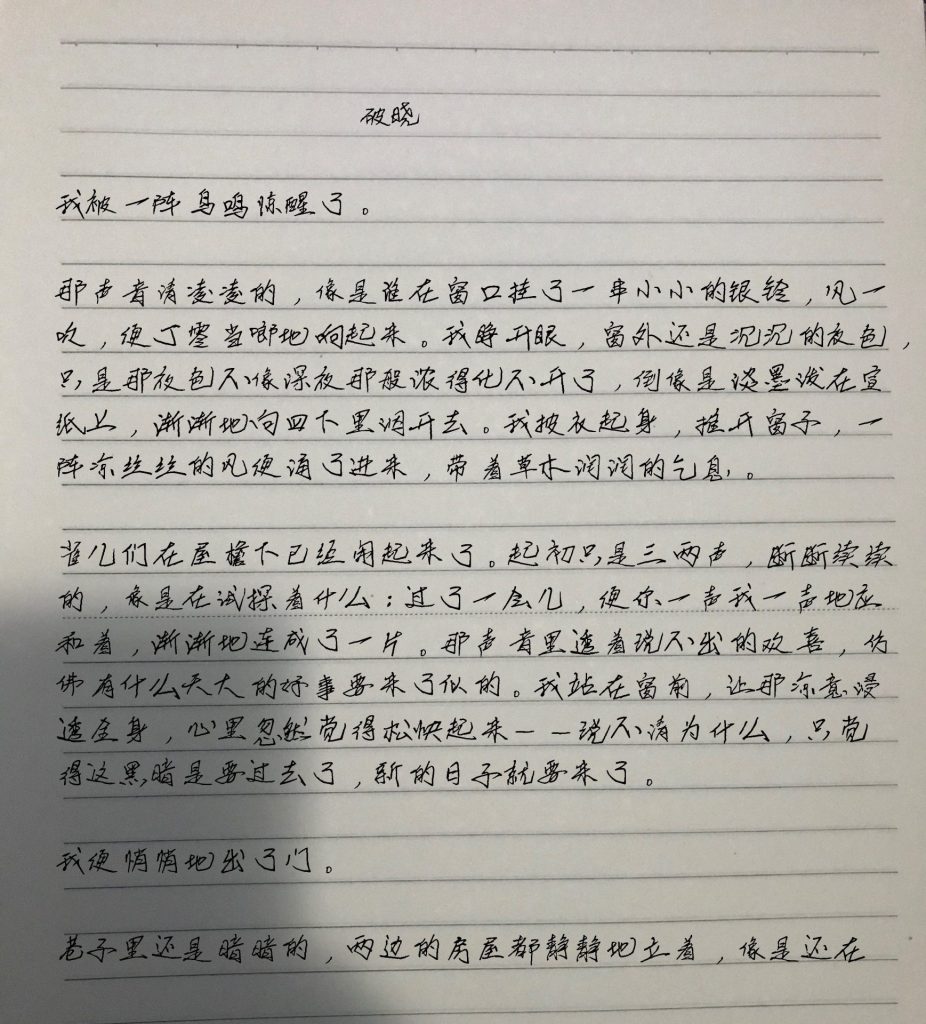 破晓
我被一阵鸟鸣惊醒了。
那声音清凌凌的，像是谁在窗口挂了一串小小的银铃，风一
吹，便丁零当啷地响起来。我睁开眼，窗外还是沉沉的夜色，
只是那夜色不像深夜那般浓得化不开了，倒像是淡墨泼在宣
纸上，渐渐地向四下里洇开去。我披衣起身，推开窗子，一
阵凉丝丝的风便涌了进来，带着草木润润的气息。
雀儿们在屋檐下已经闹起来了。起初只是三两声，断断续续
的，像是在试探着什么；过了一会儿，便你一声我一声地应
和着，渐渐地连成了一片。那声音里透着说不出的欢喜，仿
佛有什么天大的好事要来了似的。我站在窗前，让那凉意浸
透全身，心里忽然觉得松快起来——说不清为什么，只觉
得这黑暗是要过去了，新的日子就要来了。
我便悄悄地出了门。
巷子里还是暗暗的，两边的房屋都静静地立着，像是还在